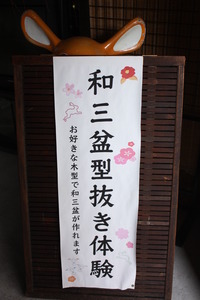 和三盆型抜き体験
お好きな木型で和三盆が作れます